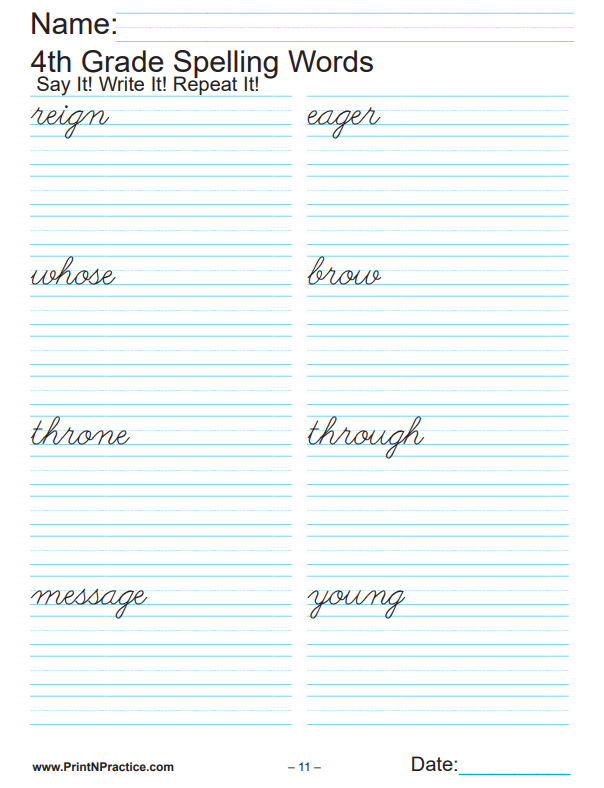 Name:
4th Grade Spelling Words
Say It! Write It! Repeat It!
reign eager
whose brow
throne through
message young
www.PrintNPractice.com – 11 – Date: